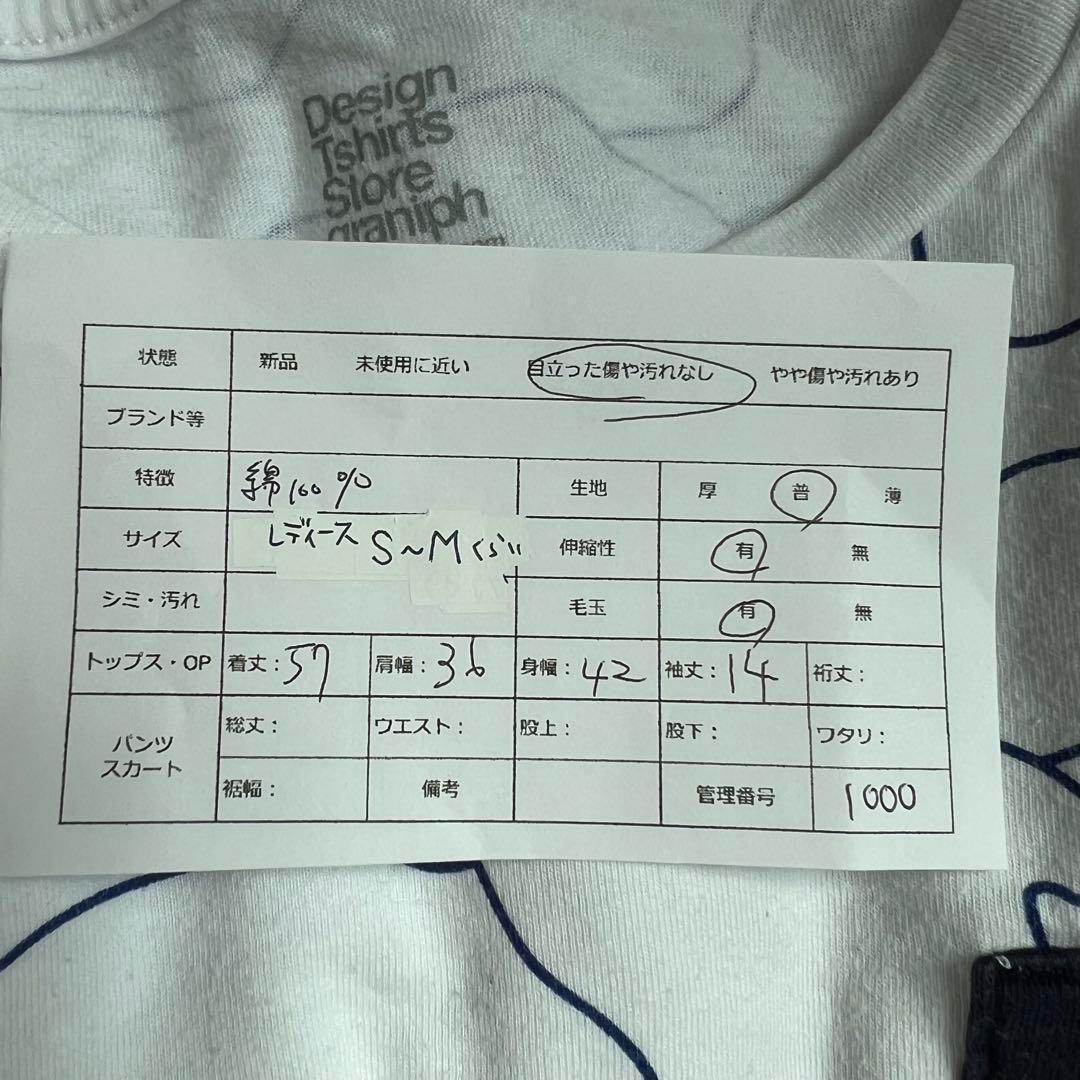 Design
Tshirts
Store
graniph
状態 新品 未使用に近い 目立った傷や汚れなし やや傷や汚れあり
ブランド等
特徴 綿100% 生地 厚 普 薄
サイズ レディース S~Mくらい 伸縮性 有 無
シミ・汚れ 毛玉 有 無
トップス・OP 着丈:57 肩幅:36 身幅:42 袖丈:14 裄丈:
パンツ
スカート
総丈: ウエスト: 股上: 股下: ワタリ:
裾幅: 備考 管理番号 1000